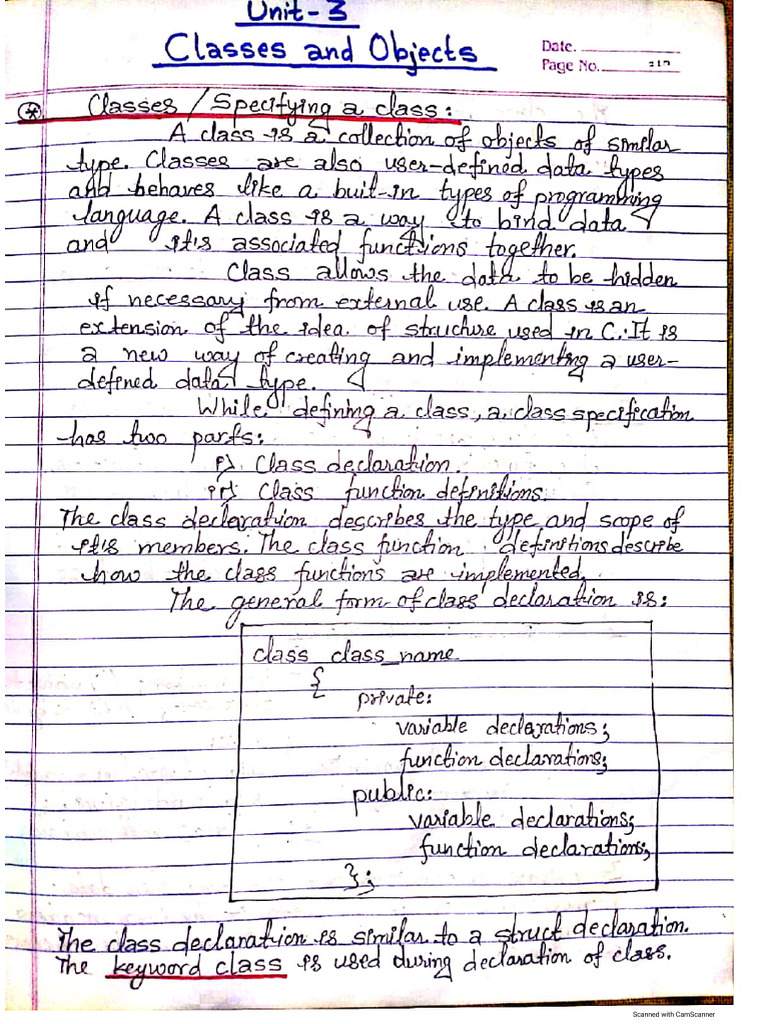 Unit-3
Classes and Objects
Date.
Page No.
Classes / Specifying a class:
A class is a collection of objects of similar
type. Classes are also user-defined data types
and behaves like a buit-in types of programming
language. A class is a way to bind data
and it's associated functions together.
Class allows the data to be hidden
if necessary from external use. A class is an
extension of the idea of structure used in C. It is
a new way of creating and implementing a user-
defined data type.
While defining a class, a class specification
has two parts:
i> Class declaration.
ii> Class function definitions.
The class declaration describes the type and scope of
it's members. The class function definitions describe
how the class functions are implemented.
The general form of class declaration is:
class class_name
{
private:
variable declarations;
function declarations;
public:
variable declarations;
function declarations;
};
The class declaration is similar to a struct declaration.
The keyword class is used during declaration of class.
Scanned with CamScanner